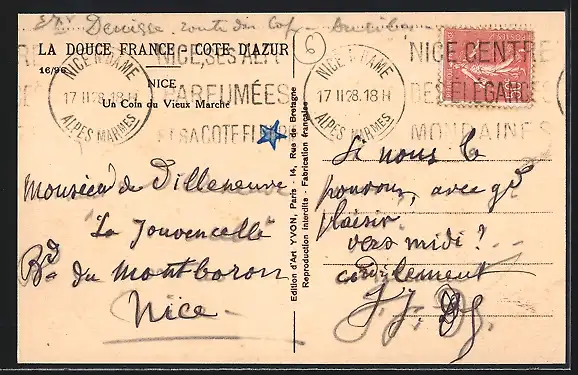 Denisse. route du Cap
LA DOUCE FRANCE - COTE D'AZUR
16/96
NICE
Un Coin du Vieux Marché
NICE N. DAME
17 II 28.18 H
ALPES MARMES
NICE, SES
PARFUMÉES
SA COTE
6
NICE N. DAME
17 II 28.18 H
ALPES MARMES
NICE CENTRE
DES ELEGANCES
MONDAINES
Monsieur de Villeneuve
"La Jouvencelle"
Bd du Montboron
Nice.
Edition d'Art YVON, Paris - 14, Rue de Bretagne
Reproduction interdite - Fabrication française
Si nous le
pouvons, avec gd
plaisir
vers midi?
cordialement
J. J.